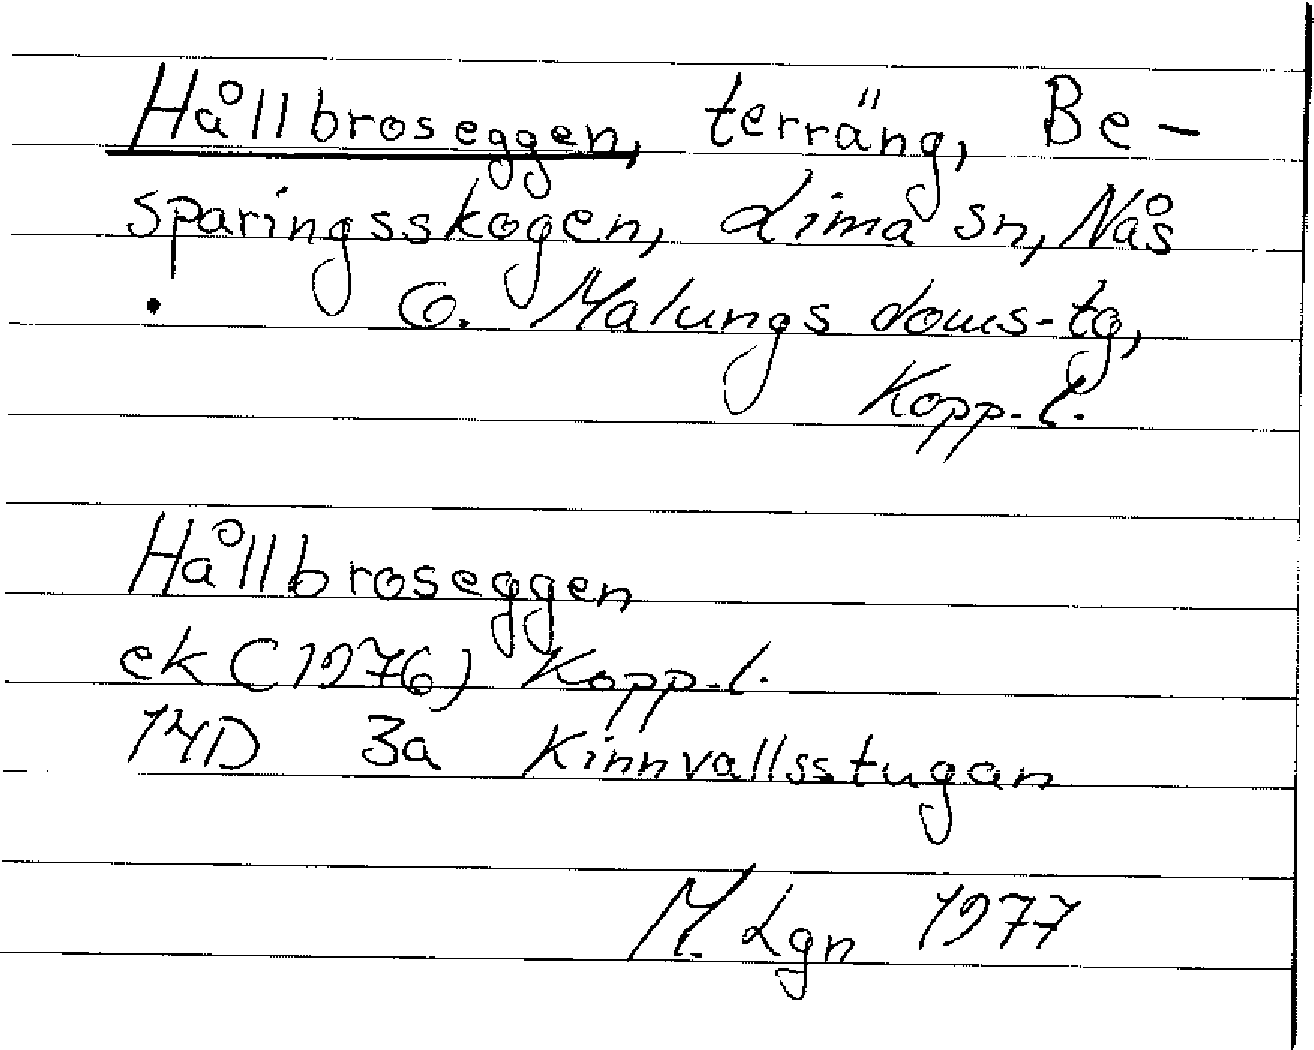 Hållbroseggen, terräng, Be-
sparingsskogen, Lima sn, Nås
o. Malungs doms-tg,
Kopp. l.
Hållbroseggen
ek (1976) Kopp. l.
14D 3a Kinnvallsstugan
M. Lgn 1977